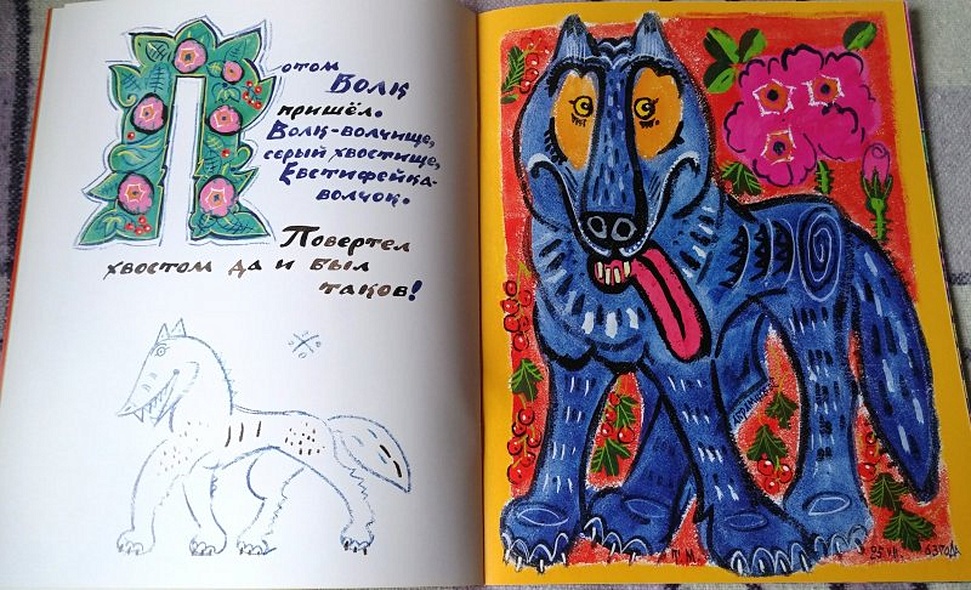 Потом
Волк
пришёл.
Волк-волчище,
серый хвостище,
Евстифейка-
волчок.
Повертел
хвостом да и был
таков!
Т.М 25 VII. 63 года